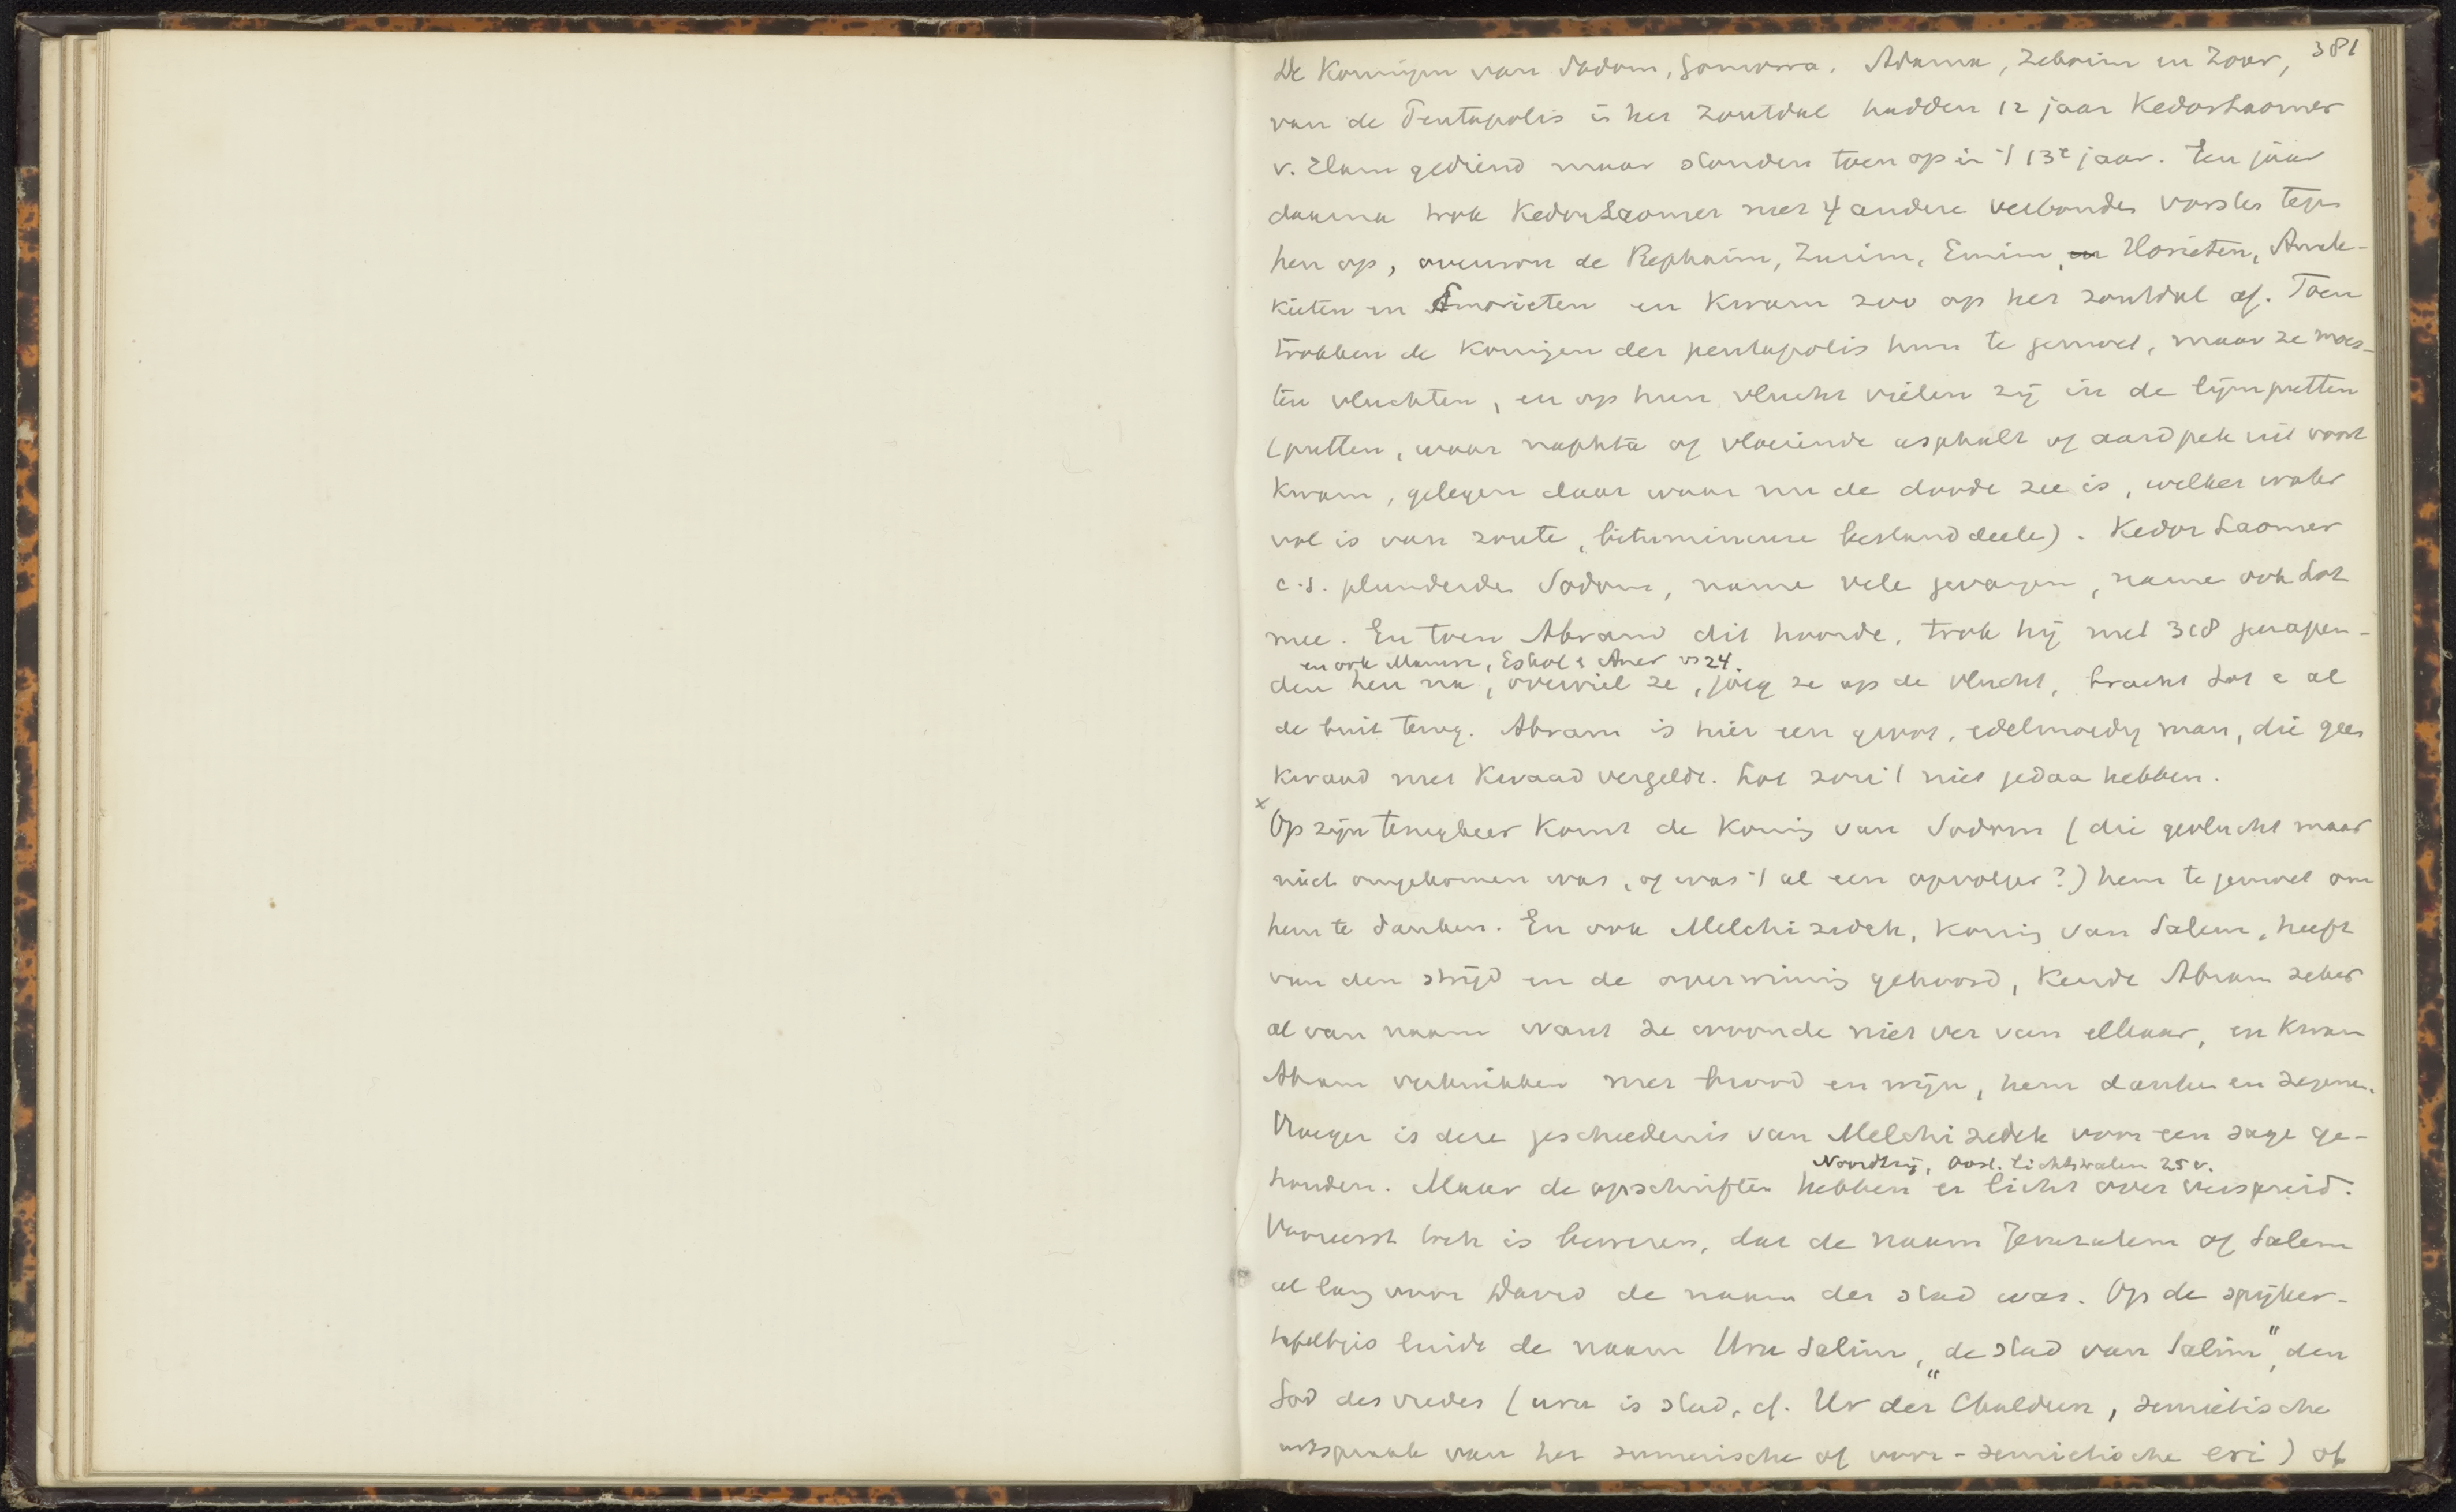 381
De Koningen van Sodom, Gomorra, Adama, Zeboim en Zoar,
van de Pentapolis i het Zoutdal hadden 12 jaar Kedorlaomer
v. Elam gediend maar stonden toen op in 't 13e jaar. Een jaar
daarna trok KedorLaomer met 4 andere verbonden vorsten tegen
hen op, overwon de Rephaim, Zuzim, Emim, en Horieten, Amele-
kieten en Amorieten en kwam zoo op het zoutdal af. Toen
trokken de Koningen der pentapolis hun te gemoet, maar ze moes-
ten vluchten, en op hun vlucht vielen zij in de lijmputten
(putten, waar naphta of vloeiende asphalt of aardpek uit voort
kwam, gelegen daar waar nu de doode zee is, welker water
vol is van zoute, bitumineuse bestanddeele). Kedor Laomer
c.s. plunderde Sodom, name vele gevangen, name ook Lot
mee. En toen Abram dit hoorde, trok hij met 318 gewapen-
en ook Mamre, Eskol & Aner vs 24.
den hen na, overviel ze, joeg ze op de vlucht, bracht Lot e al
de buit terug. Abram is hier een groot, edelmoedig man, die geen
kwaad met kwaad vergeldt. Lot zou 't niet gedaa hebben.
x Op zijn terugkeer komt de Koning van Sodom (die gevlucht maar
niet omgekomen was, of was 't al een opvolger?) hem te gemoet om
hem te danken. En ook Melchizedek, Koning van Salem, heeft
van den strijd en de overwinning gehoord, kende Abram zeker
al van naam want ze woonde niet ver van elkaar, en kwam
Abram verkwikken met brood en wijn, hem danken en zegenen.
Vroeger is deze geschiedenis van Melchizedek voor een sage ge-
Noordtzij, Oost. Lichtstralen 25 v.
houden. Maar de opschriften hebben er licht over verspreid.
Vooreerst toch is bewezen, dat de naam Jeruzalem of Salem
al lang voor David de naam der stad was. Op de spijker-
tafeltjes luide de naam Uru Salim, "de stad van Salim", den
God des vredes (uru is stad, cf. Ur der Chaldeen, semietische
uitspraak van het sumerische of voor-semietische eri) of